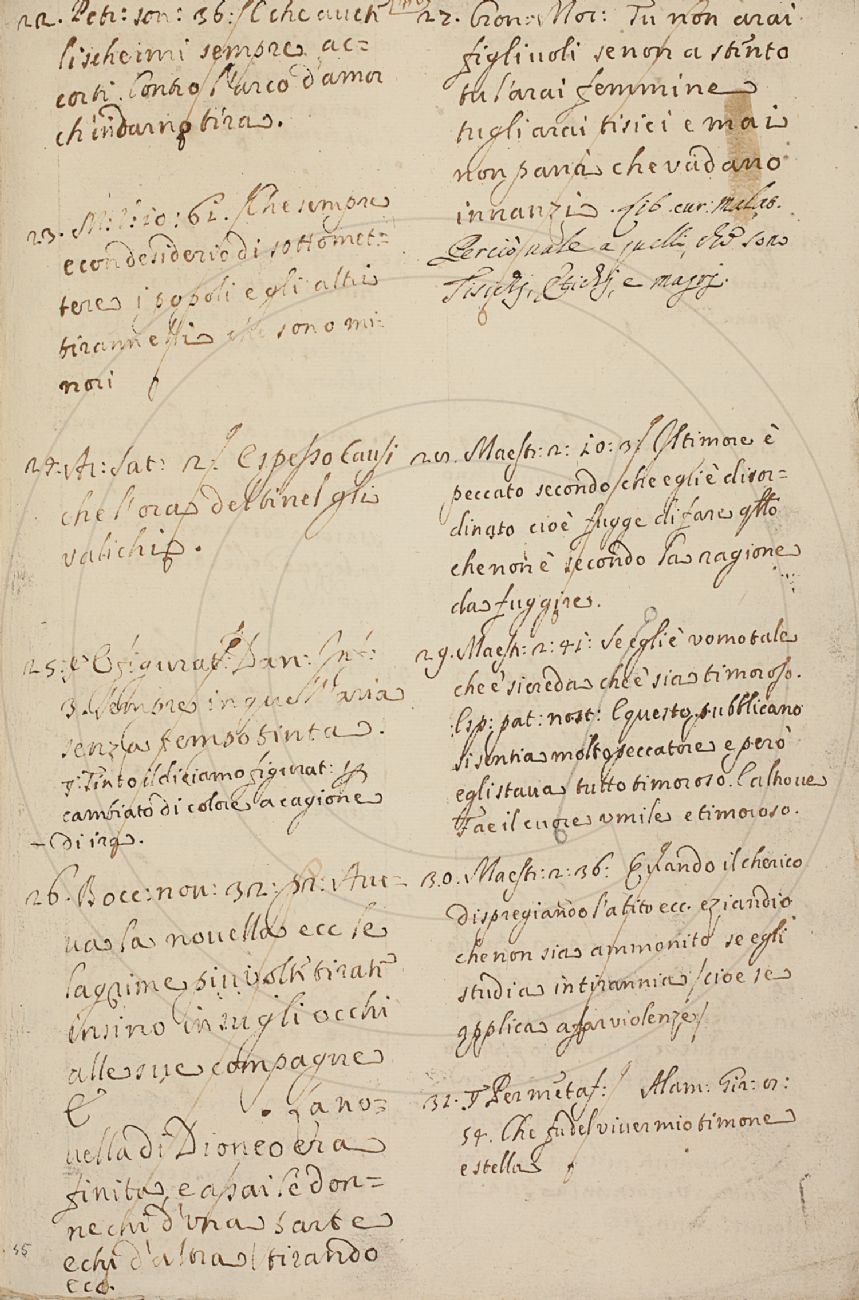 22. Petr: son: 36: / Che aueti
lischeimi sempre ac=
corti Contro l'arco d'amor
ch'indarno tira.
23. M: 10: 61. / Che sempre
e con desiderio di sottomet=
tere i popoli e gli altri
tirannetti che sono mi=
nori
24. Ar: Sat: 2. / E spesso Causi
che l'ora del tinel gli
valichi.
25. E figurat: Dan: Inf:
3. Sempre in quell'aria
senza tempo tinta.
Tinto il diciamo figurat:
cambiato di colore a cagione
- Di ira.
26. Bocc: nou: 32: Aue=
ua la nouella ecc le
lagrime piu volte tirate
insino in su gli occhi
alle sue compagne
E . La no=
uella di Dioneo era
finita, e assai le don=
ne chi d'una parte
e chi d'altra / tirando
ecc.
55
27. Cron: Mor: Tu non arai
figliuoli se non a stento
tu l'arai femmine
tu gli arai tisici e mai
non parrà che vadano
innanzi. Lib. cur. malat.
Perciò uale a quelli, che sono
Tisichi, Etichi, e magri.
28. Maestr: 2: 10: 3 / Il timore è
peccato secondo che egli è disor=
dinato cioè fugge di fare q̃llo
che non è secondo la ragione
da fuggire.
29. Maestr: 2: 41: Se egli è vomo tale
che è si creda che è sia timoroso.
Esp: pat: nost: E questo pubblicano
si sentia molto peccatore e però
egli staua tutto timoroso. E alhoue
Fae il cuore vmile e timoroso.
30. Maestr: 2: 36: Quando il cherico
dispregiando l'abito ecc. eziandio
che non sia ammonito se egli
studia in tirannia / cioe se
applica a far violenze /
31. Per metaf: / Alam: Gir: 01:
54. Che fu del viuer mio timone
e stella